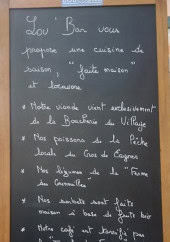 Lov'Bar vous
propose une cuisine de
saison, "faite maison"
et locavore
* Notre viande vient exclusivement
de la Boucherie du Village
* Nos poissons de la Pêche
locale du Cros de Cagnes
* Nos légumes de la "Ferme
des
* Nos sont faits
maison à base de
* Notre café est